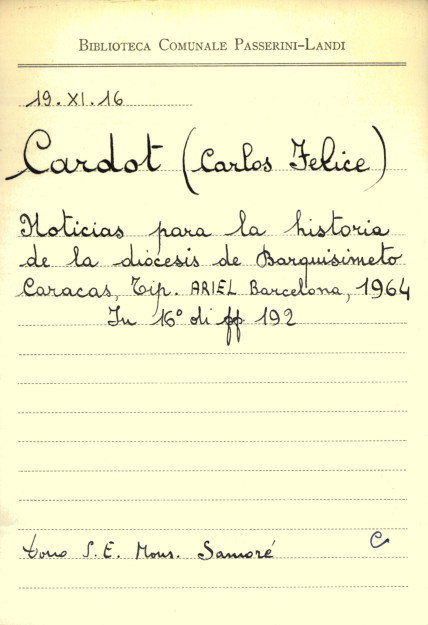 BIBLIOTECA COMUNALE PASSERINI-LANDI
19.XI.16
Cardot (Carlos Felice)
Noticias para la historia
de la diócesis de Barquisimeto
Caracas, Tip. ARIEL Barcelona, 1964
In 16° di pp 192
dono S.E. Mons. Samoré
C